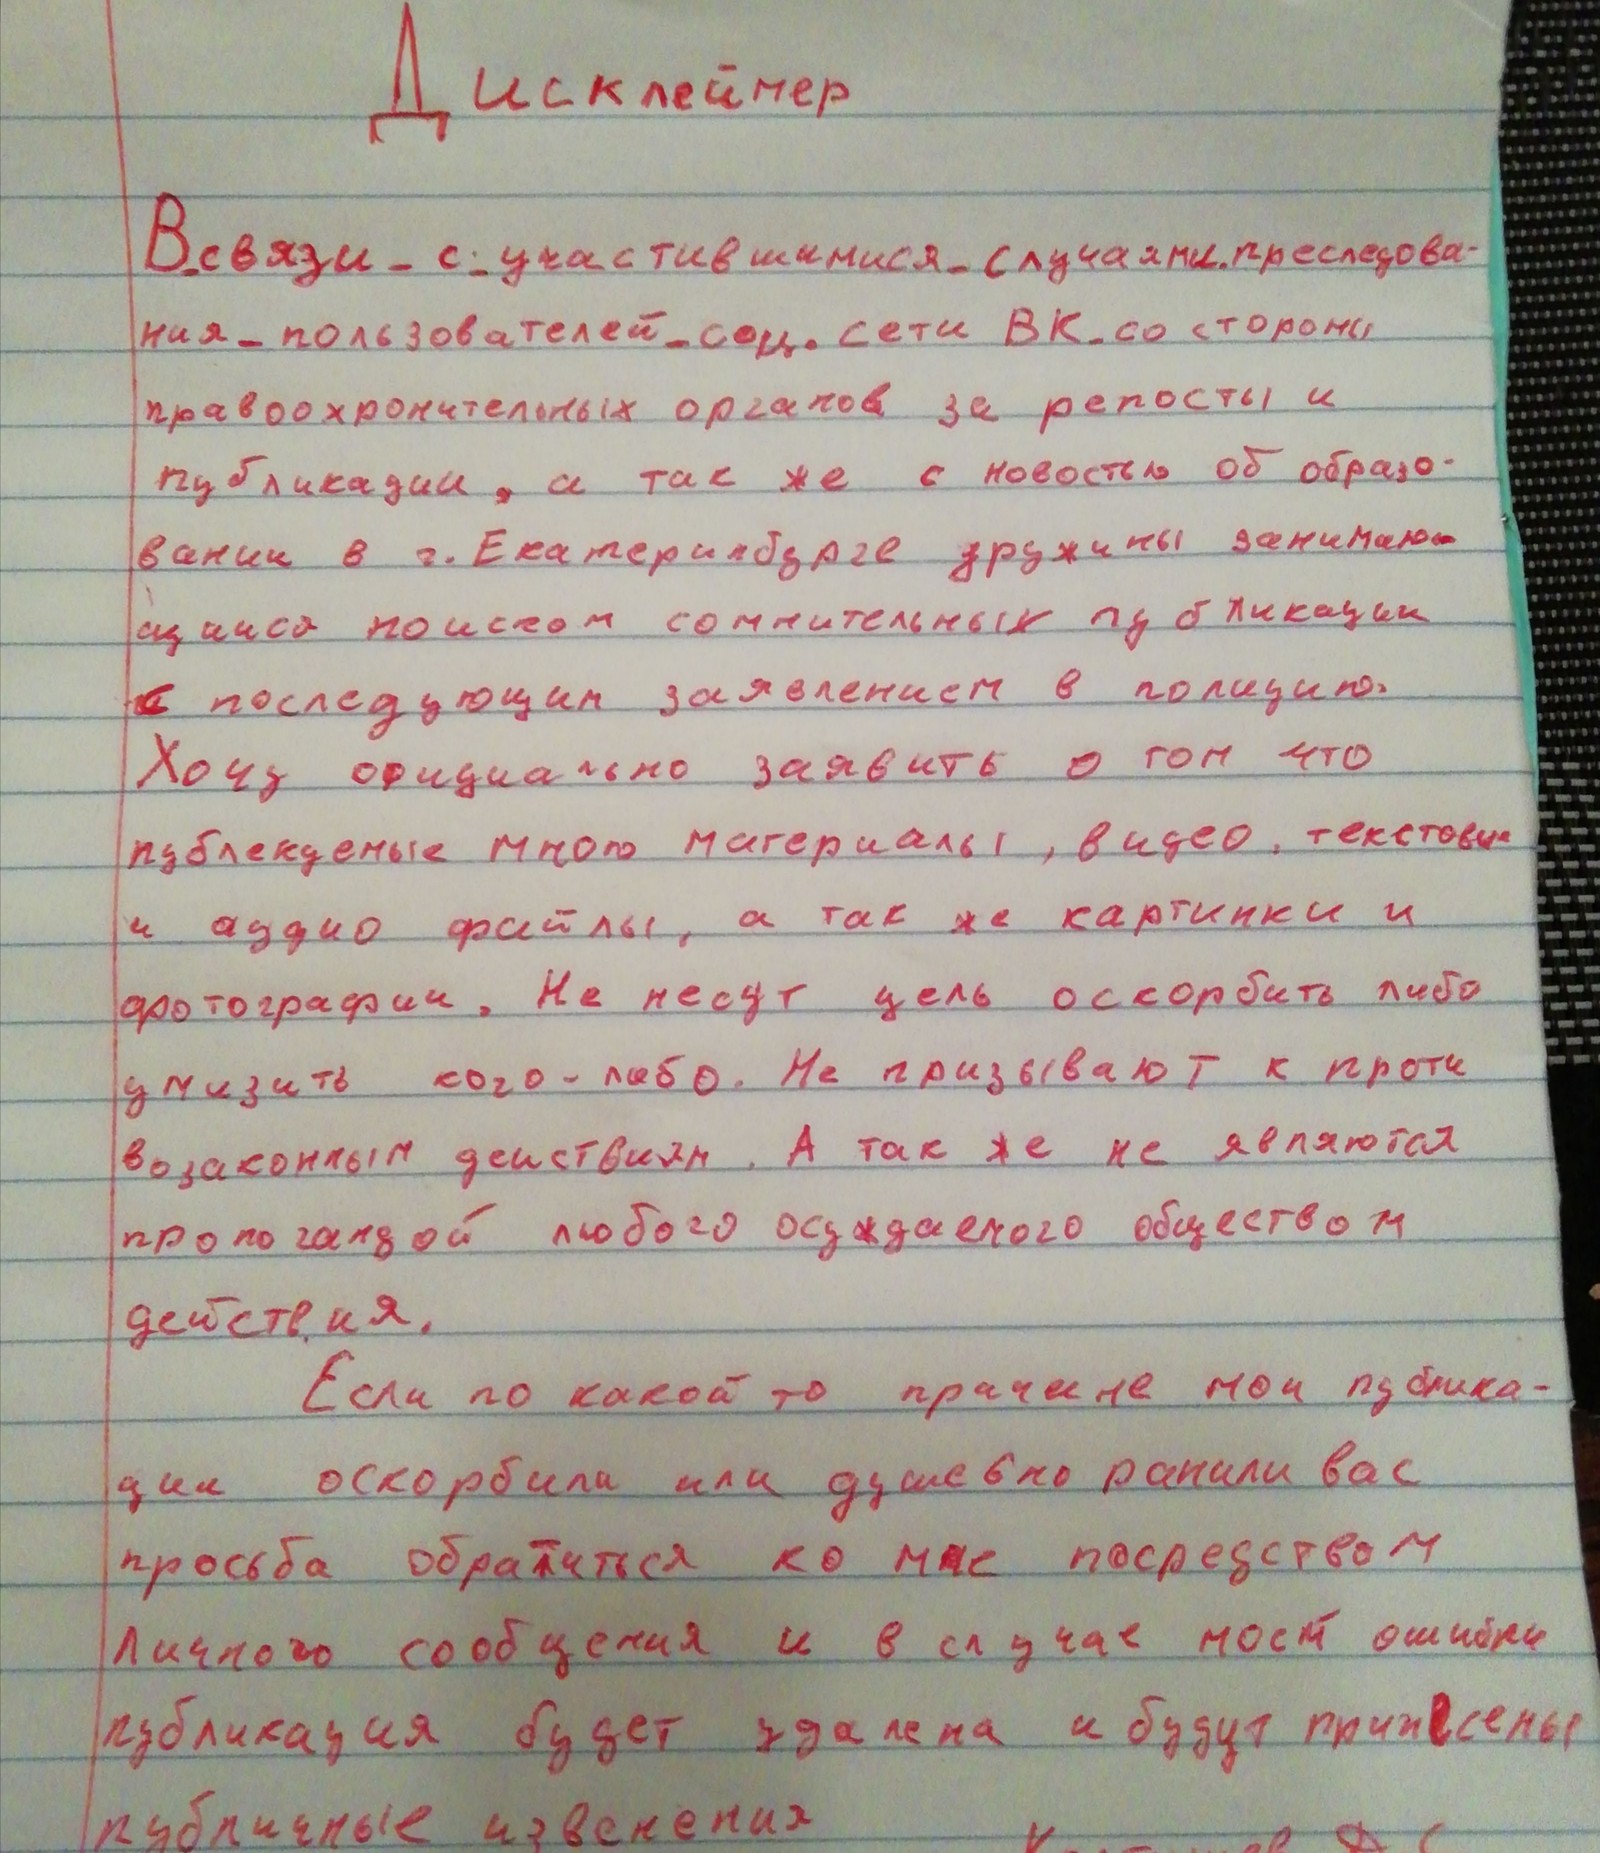 Дисклеймер
В связи с участившимися случаями преследова-
ния пользователей соц. сети ВК со стороны
правоохронительных органов за репосты и
публикации, а так же с новостью об образо-
вании в г. Екатеринбурге дружины занимаю-
щийся поиском сомнительных публикации
с последующим заявлением в полицию.
Хочу официально заявить о том что
публекуемые мною материалы, видео, текстовые
и аудио файлы, а так же картинки и
фотографии. Не несут цель оскорбить либо
унизить кого-либо. Не призывают к проти
возаконным действиям. А так же не являются
пропогандой любого осуждаемого обществом
действия.
Если по какой то причине мои публика-
ции оскорбили или душевно ранили вас
просьба обратиться ко мне посредством
личного сообщения и в случае моей ошибки
публикация будет удалена и будут принесены
публичные извенения